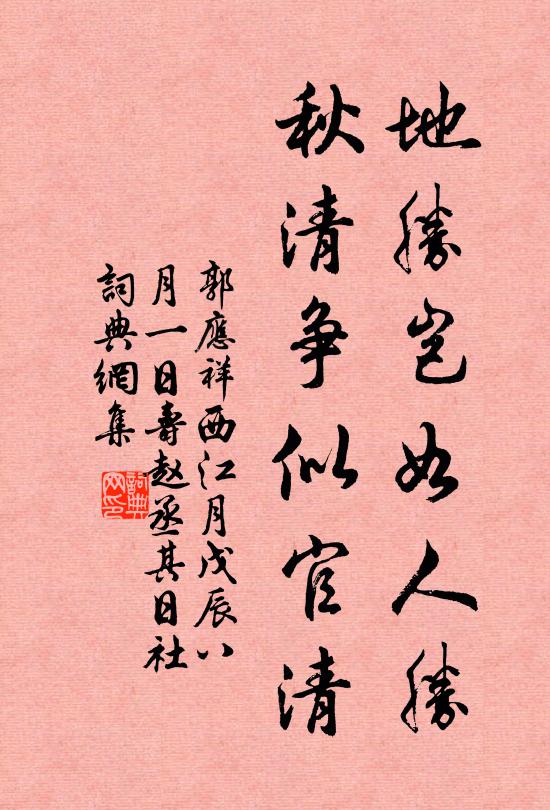 地勝豈如人勝
秋清争似官清
郭應祥西江月戊辰八
月一日壽赵丞其日社
詞典網集
詞典
网印